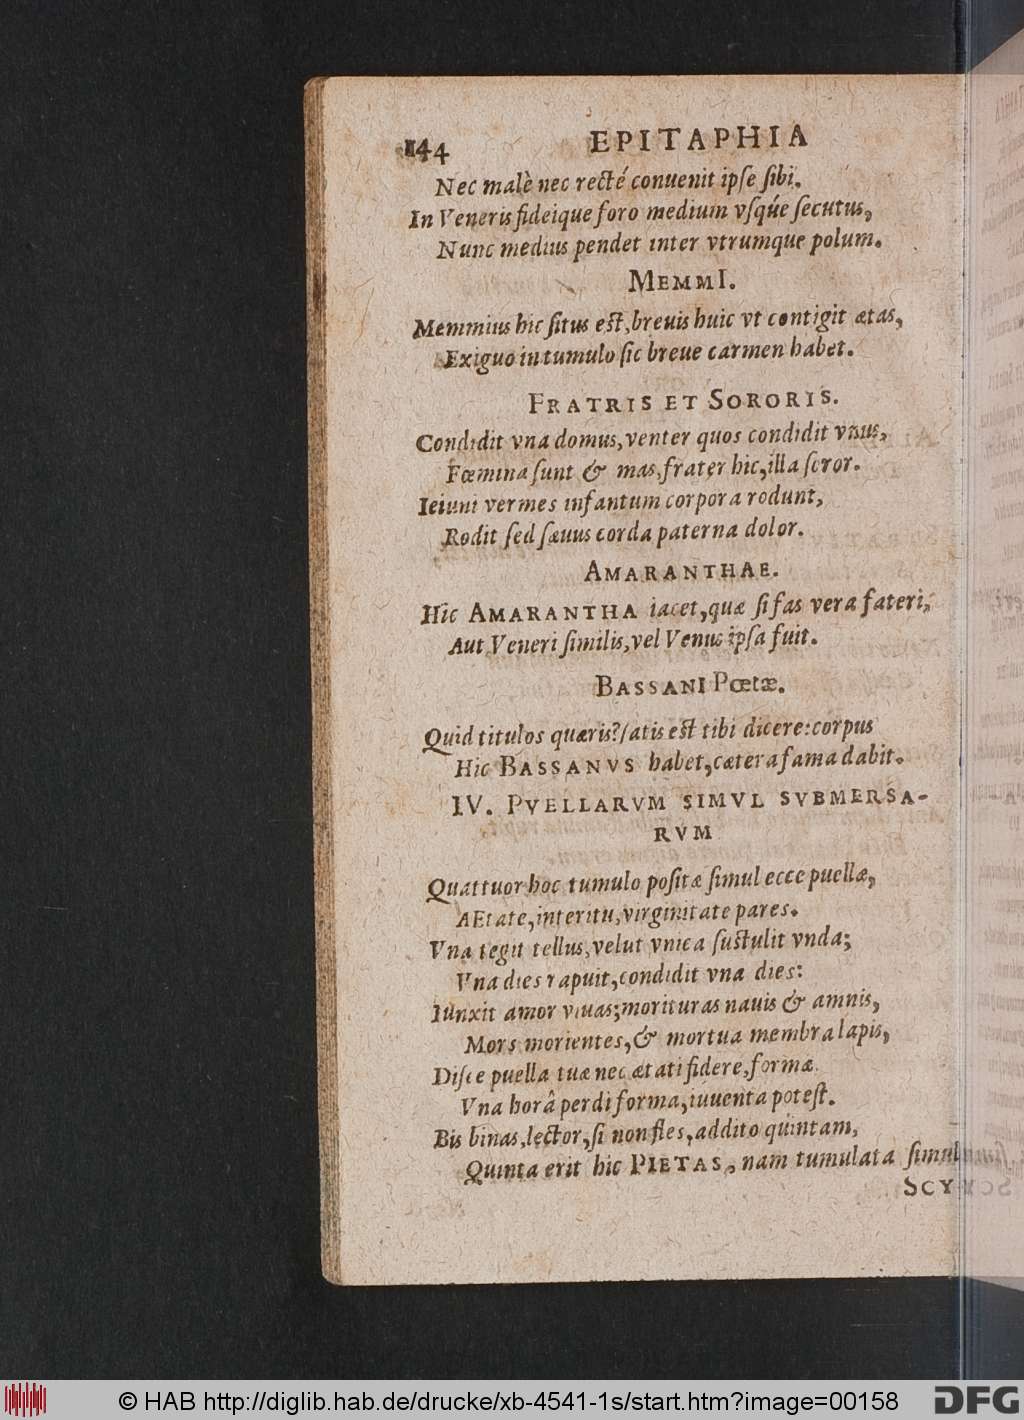 144 EPITAPHIA
Nec malè nec recté conuenit ipſe ſibi.
In Veneris fideique foro medium vſqúe ſecutus,
Nunc medius pendet inter vtrumque polum.
MEMMI.
Memmius hic ſitus eſt, breuis huic vt contigit ætas,
Exiguo in tumulo ſic breue carmen habet.
FRATRIS ET SORORIS.
Condidit vna domus, venter quos condidit vnus,
Fœmina ſunt & mas, frater hic, illa ſoror.
Ieiuni vermes infantum corpora rodunt,
Rodit ſed ſæuus corda paterna dolor.
AMARANTHAE.
Hic AMARANTHA iacet, quæ ſi fas vera fateri,
Aut Veneri ſimilis, vel Venus ipſa fuit.
BASSANI Pœtæ.
Quid titulos quæris? ſatis eſt tibi dicere: corpus
Hic BASSANVS habet, cætera fama dabit.
IV. PVELLARVM SIMVL SVBMERSA-
RVM
Quattuor hoc tumulo poſitæ ſimul ecce puellæ,
AEtate, interitu, virginitate pares.
Vna tegit tellus, velut vnica ſuſtulit vnda;
Vna dies rapuit, condidit vna dies:
Iunxit amor viuas; morituras nauis & amnis,
Mors morientes, & mortua membra lapis,
Diſce puella tuæ nec ætati fidere, formæ.
Vna horâ perdi forma, iuuenta poteſt.
Bis binas, lector, ſi non fles, addito quintam,
Quinta erit hic PIETAS, nam tumulata ſimul
SCY
© HAB http://diglib.hab.de/drucke/xb-4541-1s/start.htm?image=00158
DFG